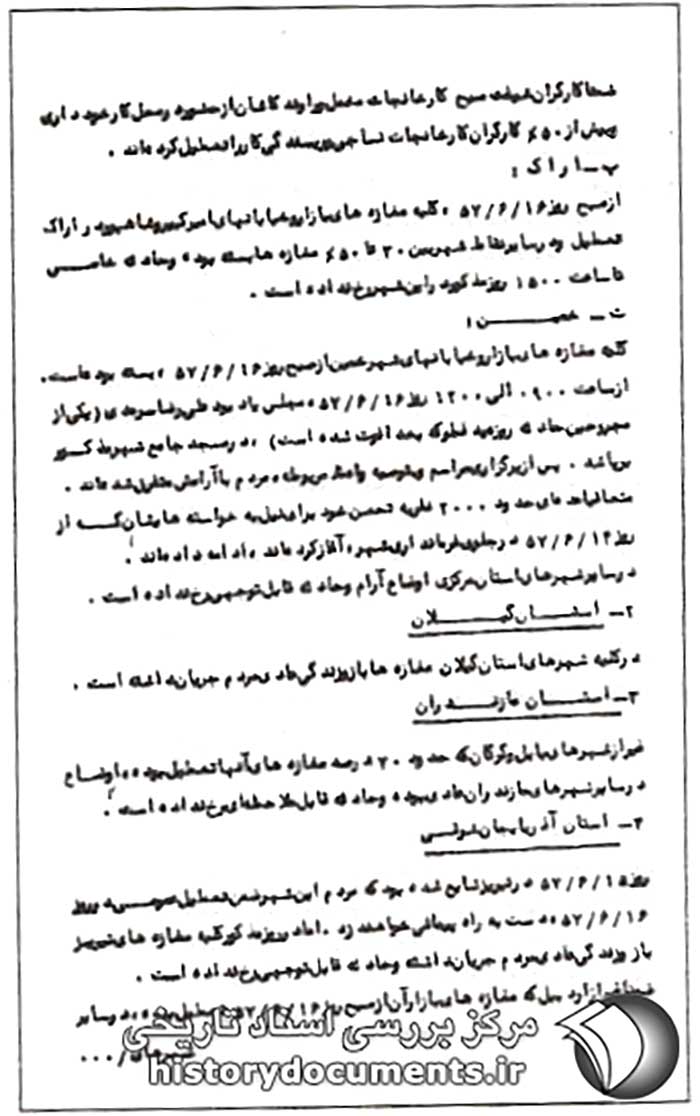 ضمنا کارگران شیفت صبح کارخانجات مخمل و راوند کاشان از حضور در محل کار خودداری
و بیش از ۵۰٪ کارگران کارخانجات نساجی و ریسندگی کار را تعطیل کرده‌اند .
پ ـ اراک :
از صبح روز ۵۷/۶/۱۶ ، کلیه مغازه های بازار و خیابانهای امیرکبیر و شاهپور در اراک
تعطیل و در سایر نقاط شهر بین ۳۰ تا ۵۰٪ مغازه ها بسته بوده و حادثه خاصی
تا ساعت ۱۵۰۰ روز مذکور در این شهر رخ نداده است .
ت ـ خمین :
کلیه مغازه های بازار و خیابانهای شهر خمین از صبح روز ۵۷/۶/۱۶ ، بسته بوده است.
از ساعت ۰۹۰۰ الی ۱۲۰۰ روز ۵۷/۶/۱۶ ، مجلس یادبود علیرضا سرمدی (یکی از
مجروحین حادثه روز عید فطر که بعدا فوت شده است) ، در مسجد جامع شهر مذکور
برپا شد . پس از برگزاری مراسم و توصیه واعظ مربوطه ، مردم با آرامش متفرق شده‌اند .
متعاقبا عده‌ای حدود ۲۰۰۰ نفر به تحصن خود برای نیل به خواسته هایشان که از
روز ۵۷/۶/۱۴ در جلوی فرمانداری شهر ، آغاز کرده‌اند ، ادامه داده‌اند .
در سایر شهرهای استان مرکزی اوضاع آرام و حادثه قابل توجهی رخ نداده است .
۲ـ استان گیلان
در کلیه شهرهای استان گیلان مغازه ها باز و زندگی عادی مردم جریان داشته است .
۳ـ استان مازندران
غیر از شهرهای بابل و گرگان که حدود ۲۰ درصد مغازه های آنها تعطیل بوده ، اوضاع
در سایر شهرهای مازندران عادی بوده و حادثه قابل ملاحظه‌ای رخ نداده است .
۴ـ استان آذربایجان شرقی
روز ۵۷/۶/۱۵ در تبریز شایع شده بود که مردم این شهر ضمن تعطیل عمومی در روز
۵۷/۶/۱۶ ، دست به راه پیمائی خواهند زد . اما در روز مذکور کلیه مغازه های تبریز
باز و زندگی عادی مردم جریان داشته و حادثه قابل توجهی رخ نداده است .
اردبیل که مغازه های بازار آن از صبح روز ۵۷/۶/۱۶ تعطیل بوده ، در سایر
شهرهای / ۰۰۰
مرکز بررسی اسناد تاریخی
historydocuments.ir